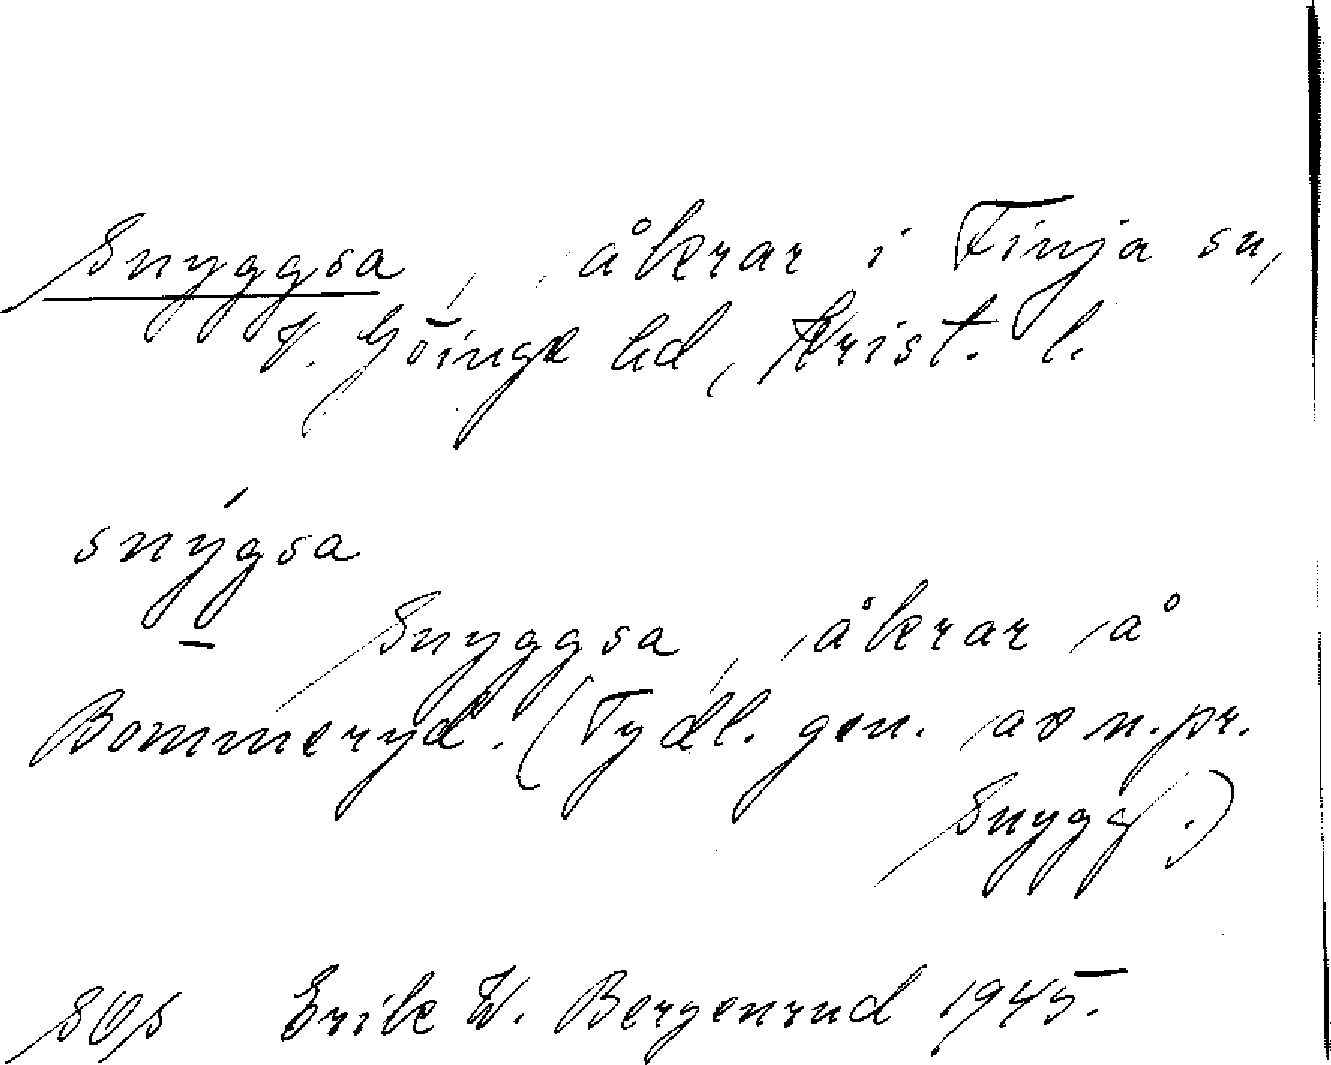 Snyggsa, åkrar i Finja sn,
V. Göinge hd, Krist. l.
snýgsa
Snyggsa, åkrar å
Bommeryd. (Tydl. gen. av n.pr.
Snygg.)
SOS Erik W. Bergenrud 1945.